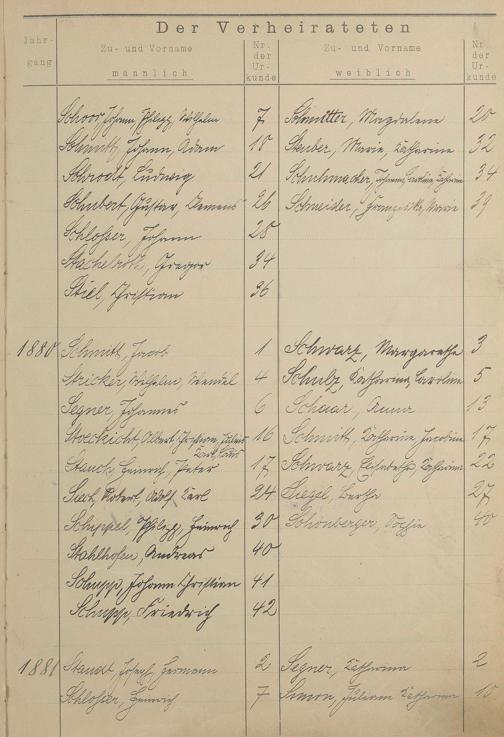 Der Verheirateten
Jahr- Zu- und Vorname Nr. Zu- und Vorname Nr.
gang männlich der weiblich der
Ur- Ur-
kunde kunde
Schoor, Johann, Philipp, Wilhelm 7 Schmitter, Magdalene 20
Schmitt, Johann, Adam 18 Stuber, Marie, Katharine 32
Schrodt, Ludwig 21 Schuhmacher, Johanna, Katharina 34
Schubert, Gustav, Clemens 26 Schneider, Franziska, Marie 39
Schlosser, Johann 28
Gregor 34
Stiel, Christian 36
1880 Schmitt, Jacob 1 Schwarz, Margarethe 3
Stricker, Wilhelm, Wendel 4 Schulz, Katharina, Caroline 5
Segner, Johannes 6 Schaar, Anna 13
Stoeckicht, Albert, Julius 16 Schmitt, Katharine, Jacobine 17
Stauch, Heinrich, Peter 17 Schwarz, Elisabetha, Katharina 22
Robert, Adolf, Carl 24 Siegel, Bertha 27
Schippel, Philipp, Heinrich 30 Schönberger, Sophie 40
Stahlhofen, Andreas 40
Schupp, Johann Christian 41
Schupp, Friedrich 42
1881 Staudt, Joseph, Hermann 2 Segner, Katharina 2
Schlosser, Heinrich 7 Simon, Juliana Katharina 10